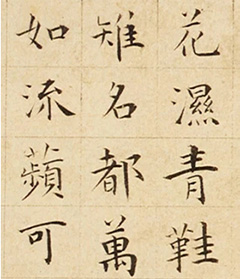 花濕青鞋
雉名都萬
如流蘋可